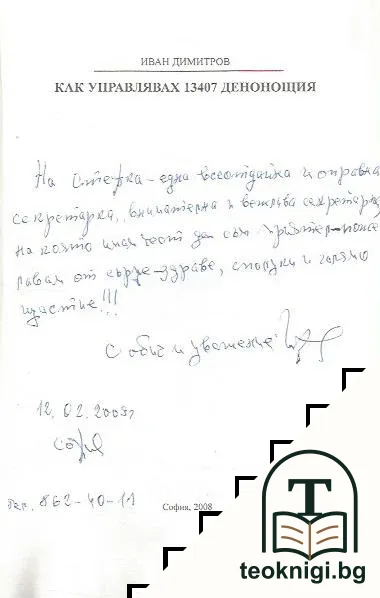 ИВАН ДИМИТРОВ
КАК УПРАВЛЯВАХ 13407 ДЕНОНОЩИЯ
На Стефка – една всеотдайна и оправна
секретарка, внимателна и вежлива секретарка,
на която имам чест да съм приятел – поже
лавам от сърце – здраве, сполуки и голямо
щастие!!!
С обич и уважение:
12.02.2009г
София
Тел. 862-40-11
София, 2008
T
teoknigi.bg